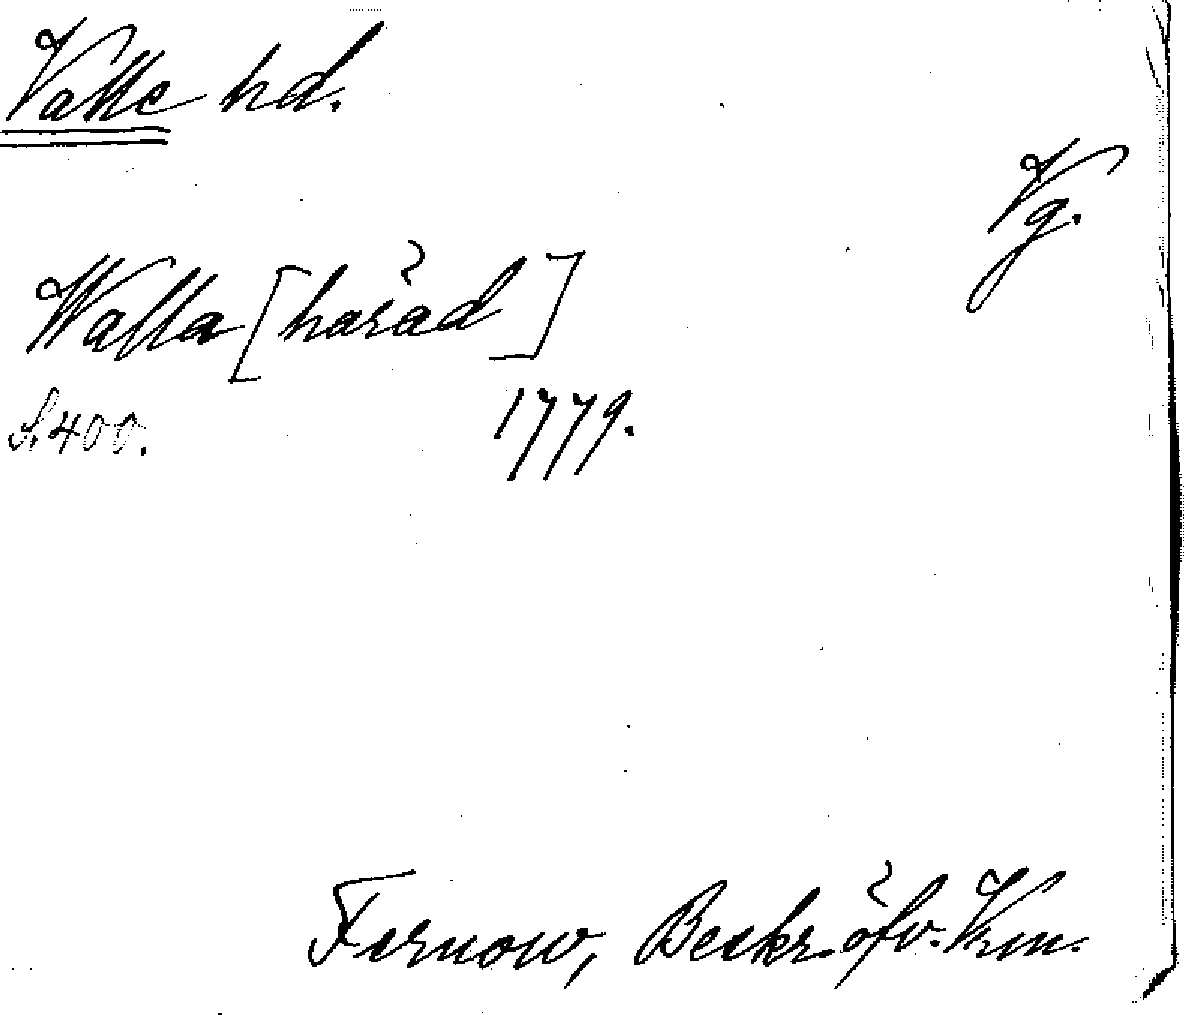 Valle hd.
Vg.
Walla [haräd]
S. 400. 1779.
Fernow, Beskr. öfv. Vrm.